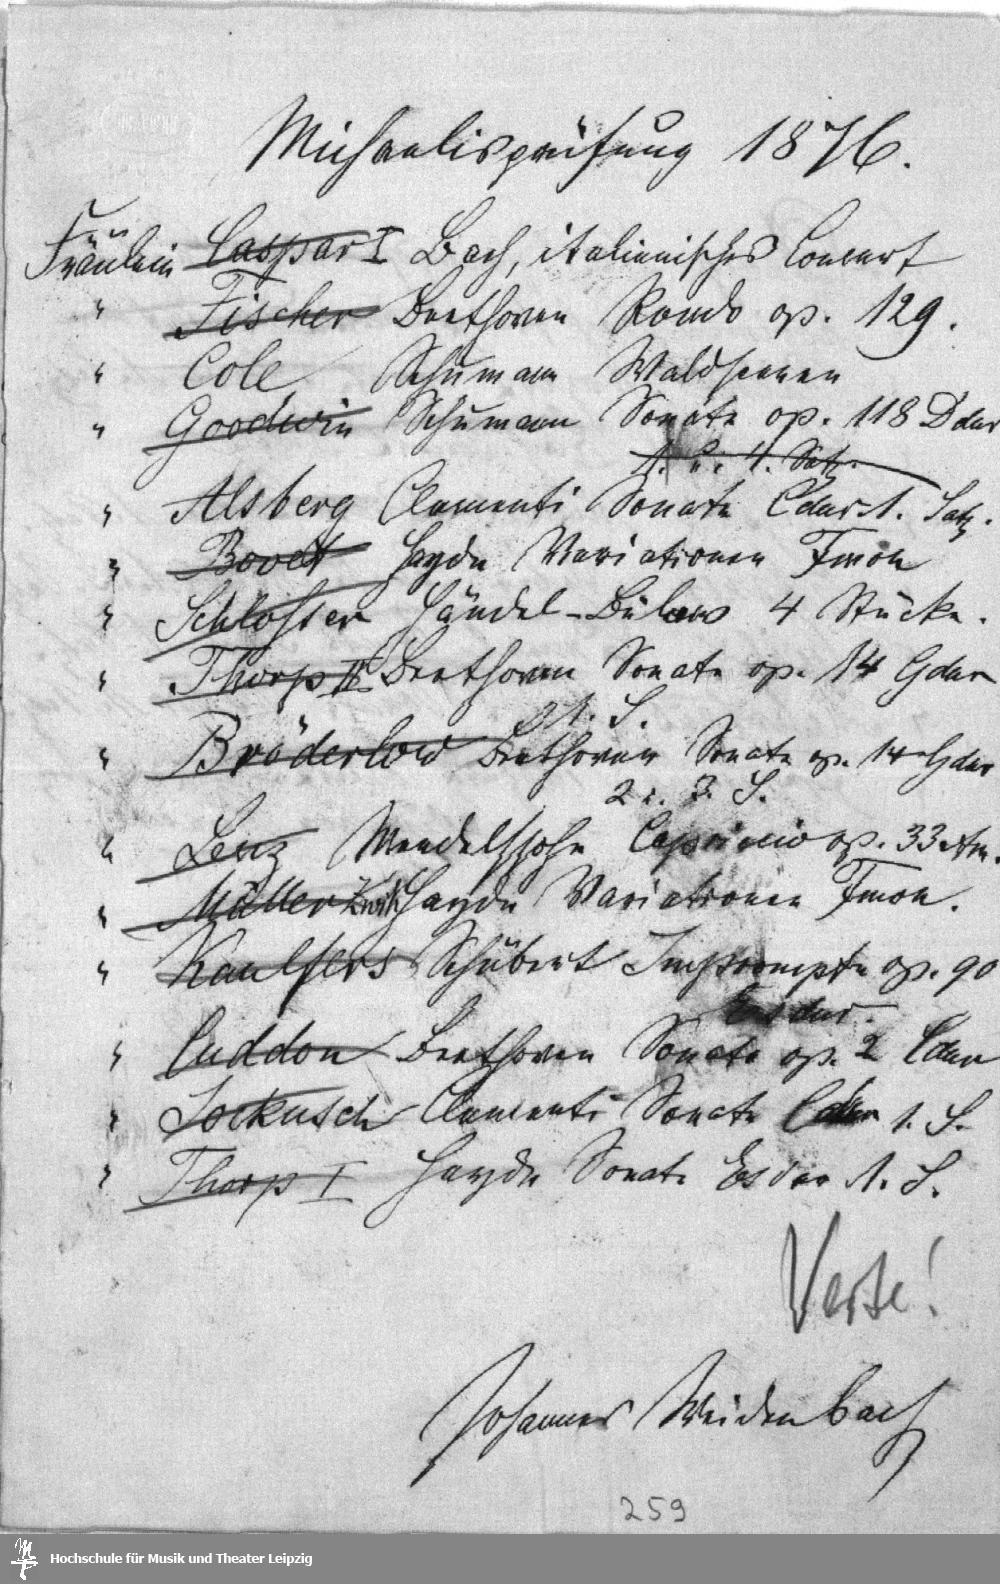 Michaelisprüfung 1876.
Fräulein Caspar I Bach, italienisches Concert
" Fischer Beethoven Rondo op. 129.
" Cole Schumann Waldscenen
" Goodwin Schumann Sonate op. 118 Ddur
1. u. 4. Satz.
" Alsberg Clementi Sonate Cdur 1. Satz.
" Bovet Haydn Variationen Fmoll
" Schlosser Händel-Bülow 4 Stücke.
" Thorp II Beethoven Sonate op. 14 Gdur
1. S.
" Bröderlow Beethoven Sonate op. 14 Gdur
2 u. 3. S.
" Lenz Mendelssohn Capriccio op. 33 Am.
" Müller Haydn Variationen Fmoll.
" Kaulfers Schubert Impromptu op. 90
Esdur.
" Cuddon Beethoven Sonate op. 2 Cdur
" Jockusch Clementi Sonate Cdur 1. S.
" Thorp I Haydn Sonate Esdur 1. S.
Verte!
Johannes Weidenbach
259
Hochschule für Musik und Theater Leipzig